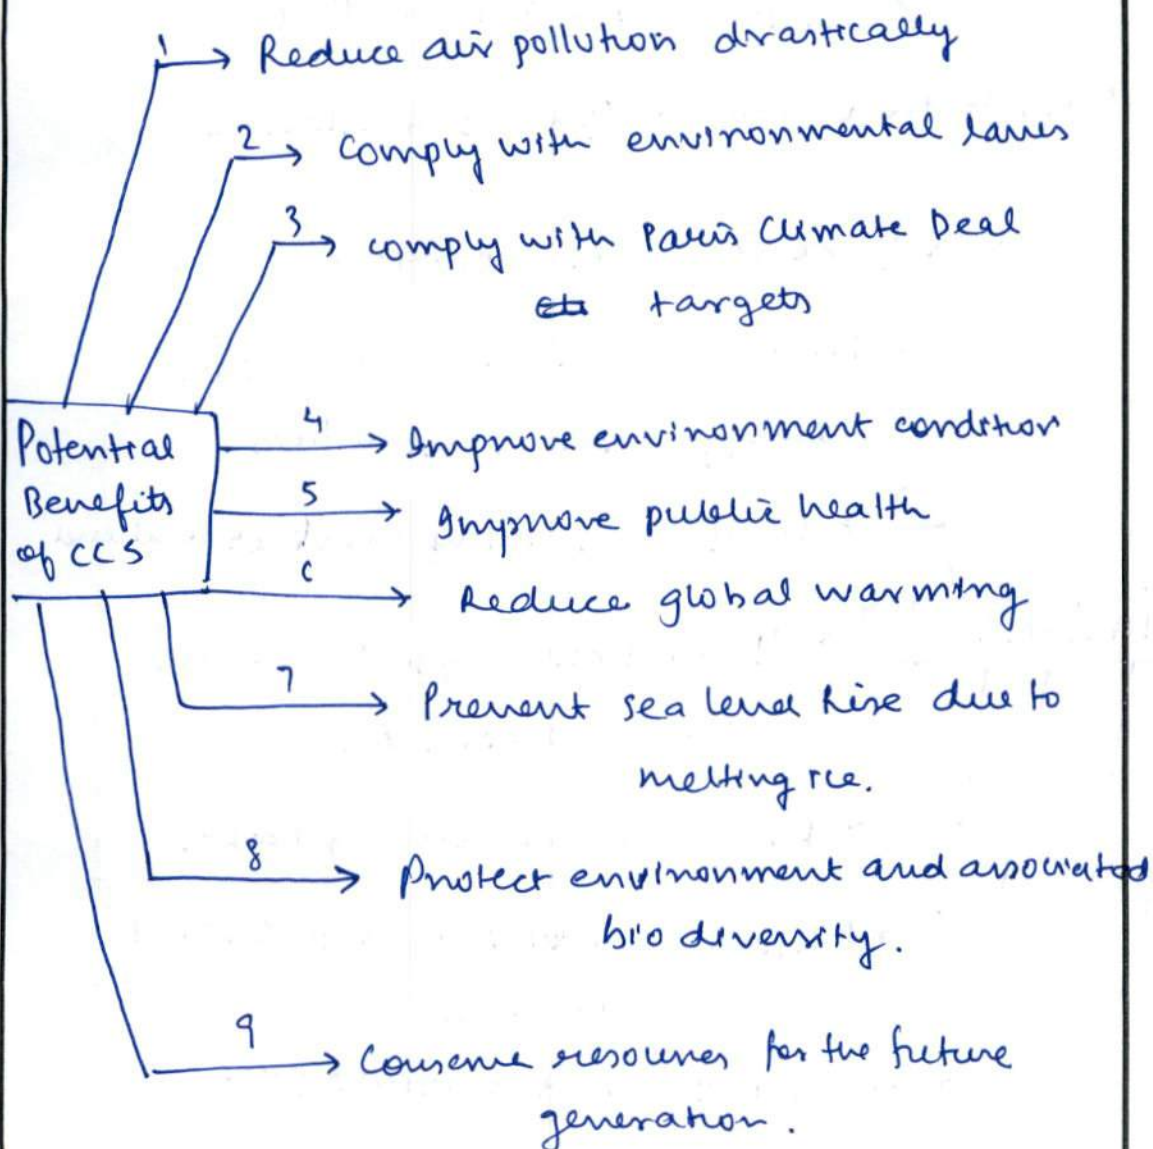 1 → Reduce air pollution drastically
2 → Comply with environmental laws
3 → comply with Paris Climate Deal
targets
Potential
Benefits
of CCS
4 → Improve environment condition
5 → Improve public health
6 → Reduce global warming
7 → Prevent sea level rise due to
melting ice.
8 → Protect environment and associated
bio diversity.
9 → Conserve resources for the future
generation.